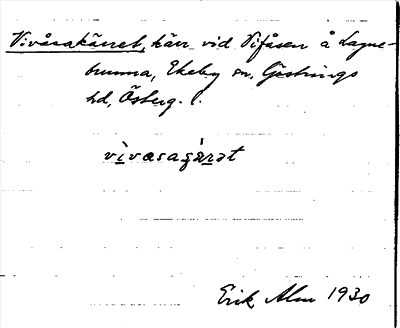 Vivåsakärret, kärr vid Vifåsen å Lagne-
brunna, Ekeby sn, Göstrings
hd, Österg.
vivasagärət
Erik Alm 1930